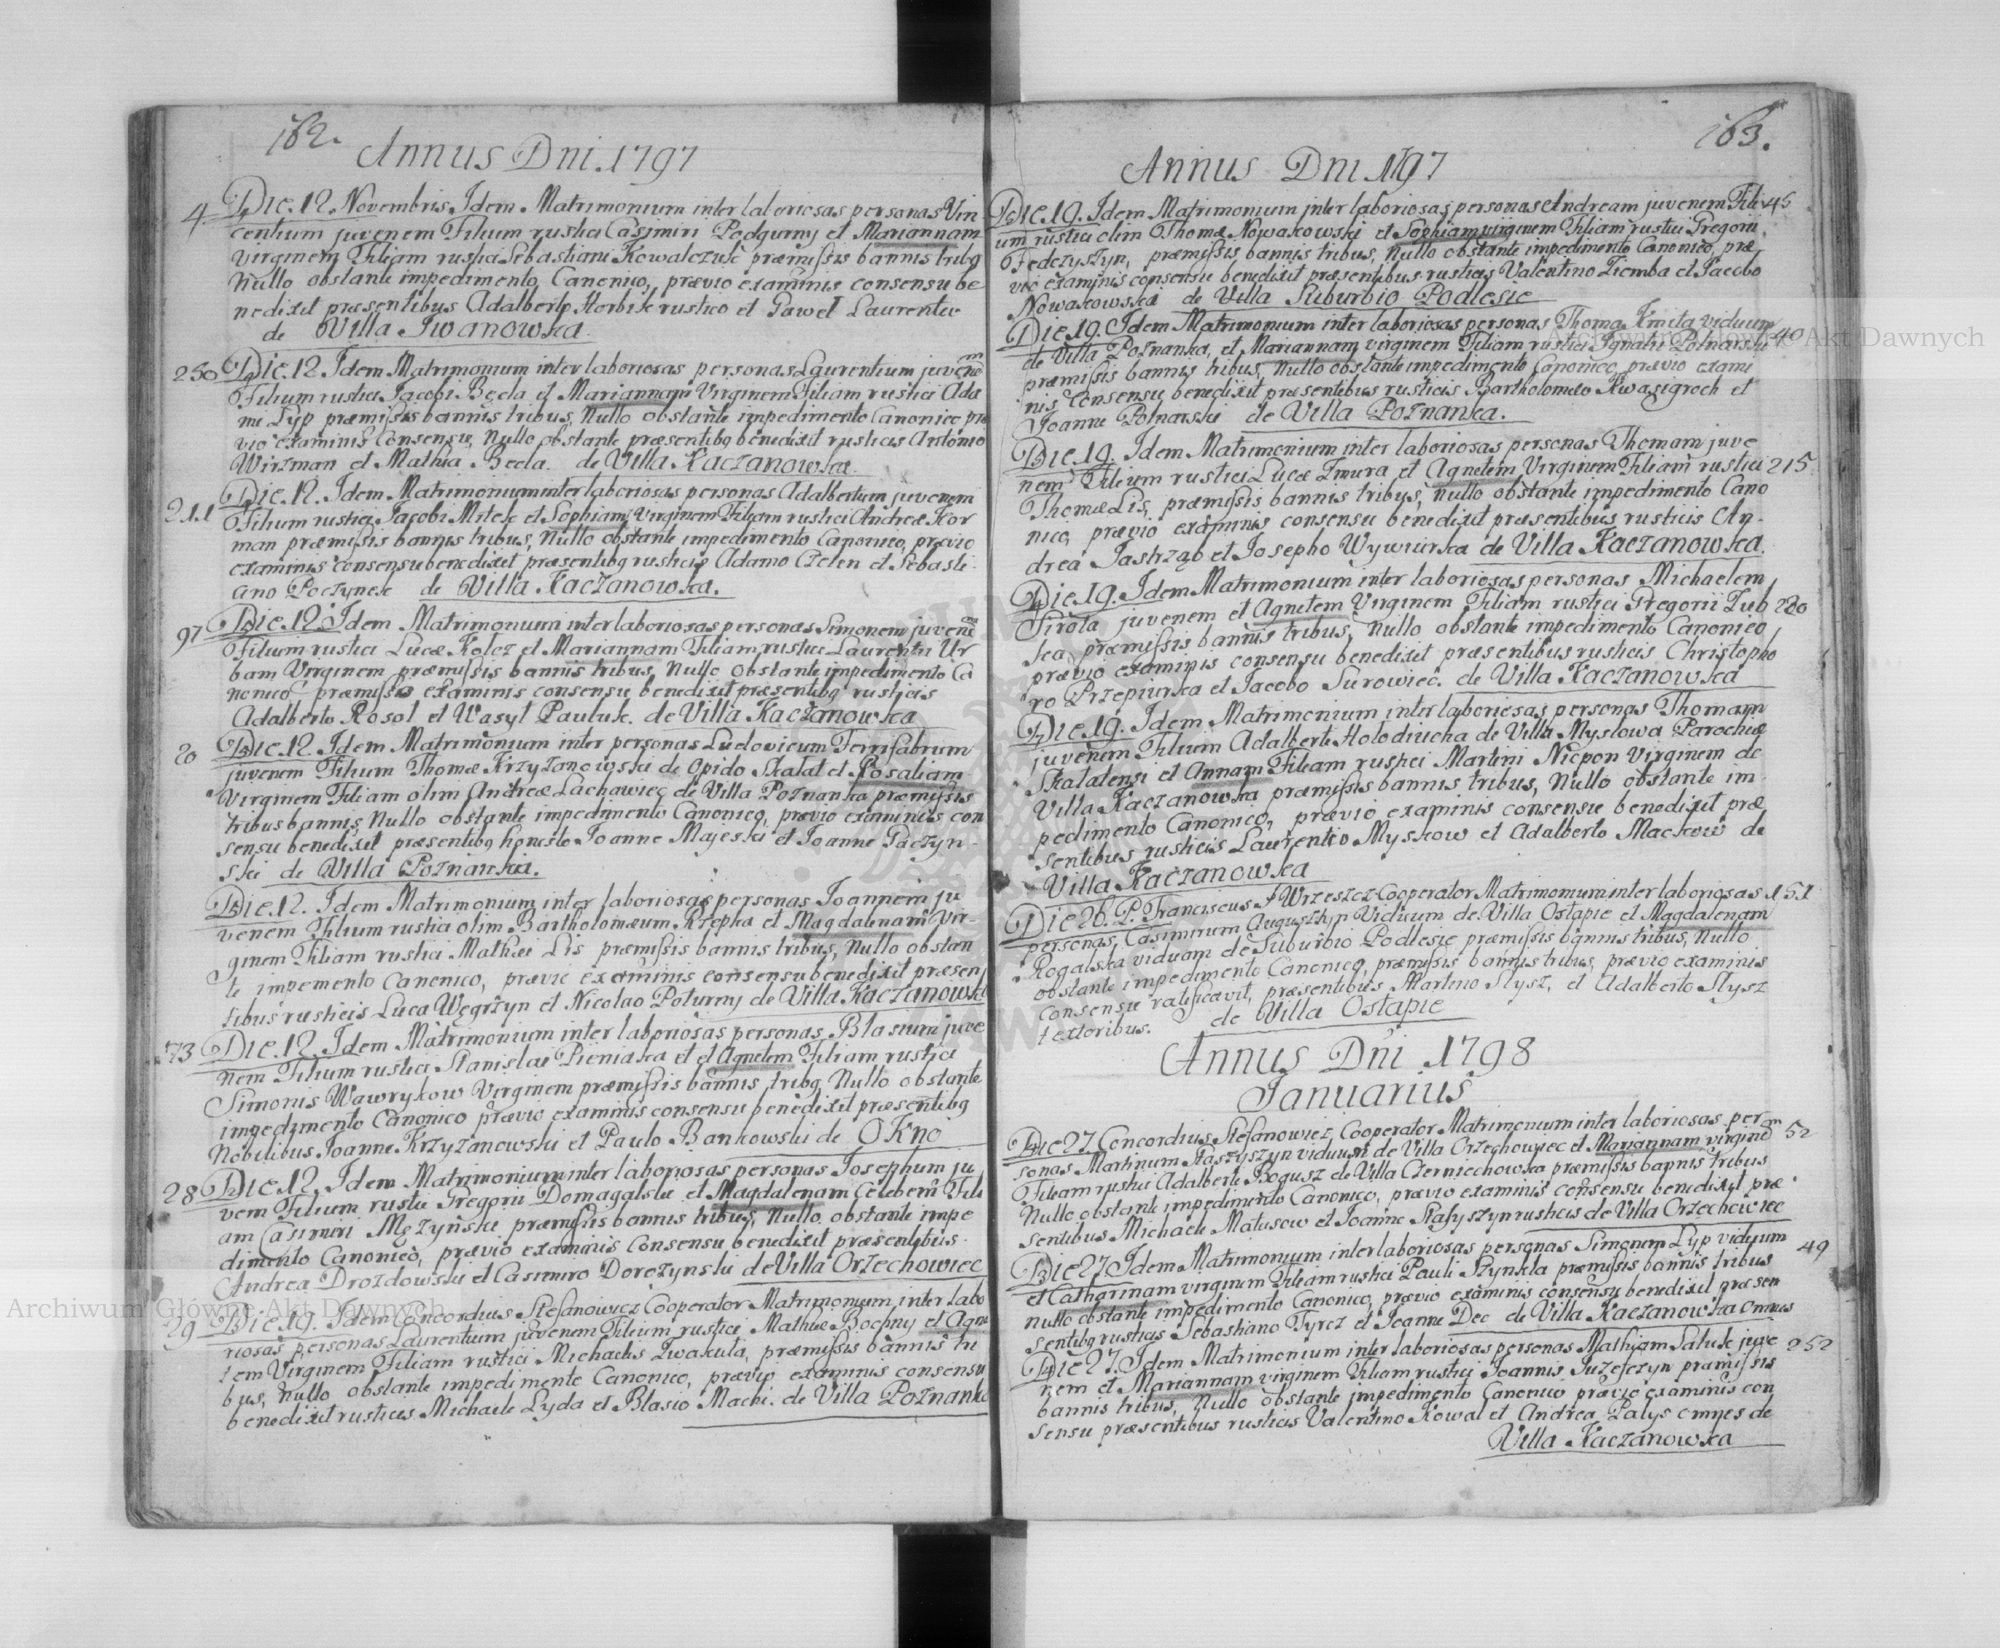 162.
Annus Dni. 1797
4. Die. 12. Novembris. Idem Matrimonium inter laboriosas personas Vin
centium juvenem Filium rustici Casimiri Podgurny et Mariannam
Virginem Filiam rustici Sebastiani Kowalczuk præmissis bannis tribg
Nullo obstante impedimento Canonico, prævio examinis consensu be
nedixit præsentibus Adalberto Horbik rustico et Paweł Laurentio
de Villa Iwanowka.
250 Die. 12. Idem Matrimonium inter laboriosas personas Laurentium juvenem
Filium rustici Jacobi Becla et Mariannam Virginem Filiam rustici Ada
mi Lyp præmissis bannis tribus, Nullo obstante impedimento Canonico præ
vio examinis Consensu, Nullo obstante præsentibg benedixit rusticis Antonio
Wirzman et Mathia Becla. de Villa Kaczanowka.
211 Die. 12. Idem Matrimonium inter laboriosas personas Adalbertum juvenem
Filium rustici Jacobi Mitek et Sophiam Virginem Filiam rustici Andreæ Kor
man præmissis bannis tribus, Nullo obstante impedimento Canonico, prævio
examinis consensu benedixit præsentibg rusticis Adamo Czelen et Sebasti
ano Poczynek de Villa Kaczanowka.
97 Die. 12. Idem Matrimonium inter laboriosas personas Simonem juvenem
Filium rustici Lucæ Kolcz et Mariannam Filiam rustici Laurentii Ur
bam Virginem præmissis bannis tribus, Nullo obstante impedimento Ca
nonico præmisso examinis consensu benedixit præsentibg rusticis
Adalberto Rosol et Wasyl Pauluk. de Villa Kaczanowka
20 Die. 12. Idem Matrimonium inter personas Ludovicum Ferrifabrum
juvenem Filium Thomæ Krzyzanowski de Opido Skałat et Rosaliam
Virginem Filiam olim Andreæ Lachawiec de Villa Poznanka præmissis
tribus bannis, Nullo obstante impedimento Canonico, prævio examinis con
sensu benedixit præsentibg honesto Joanne Majeski et Joanne Paczyn
ski de Villa Poznanka.
Die. 12. Idem Matrimonium inter laboriosas personas Joannem ju
venem Filium rustici olim Bartholomæum Rzepka et Magdalenam Vir-
ginem Filiam rustici Mathæi Lis præmissis bannis tribus, Nullo obstan
te impemento Canonico, prævio examinis consensu benedixit præsen
tibus rusticis Luca Węgrzyn et Nicolao Poturny de Villa Kaczanowka
73 Die. 12. Idem Matrimonium inter laboriosas personas Blasium juve
nem Filium rustici Stanislai Pieniaka et et Agnetem Filiam rustici
Simonis Wawrykow Virginem præmissis bannis tribg Nullo obstante
impedimento Canonico prævio examinis consensu benedixit præsentibg
Nobilibus Joanne Krzyzanowski et Paulo Bankowski de OKno
28 Die. 12. Idem Matrimonium inter laboriosas personas Josephum ju
vem Filium rustici Gregorii Domagalski et Magdalenam Celebem Fili
am Casimiri Męzyński præmissis bannis tribus, Nullo obstante impe
dimento Canonico, prævio examinis Consensu benedixit præsentibus
Andrea Drozdowski et Casimiro Dorczynski de Villa Orzechowiec
29 Die. 19. Idem Concordius Stefanowicz Cooperator Matrimonium inter labo
riosas personas Laurentium juvenem Filium rustici Mathiæ Bochny et Agne
tem Virginem Filiam rustici Michaelis Kwakula, præmissis bannis tri
bus, Nullo obstante impedimento Canonico, prævio examinis consensu
benedixit rusticis Michaele Lyda et Blasio Machi. de Villa Poznanka
163.
Annus Dni 1797
Die. 19. Idem Matrimonium inter laboriosas personas Andream juvenem Fili 45
um rustici olim Thomæ Nowakowski et Sophiam virginem Filiam rustici Gregorii
Fedczyszyn, præmissis bannis tribus, Nullo obstante impedimento Canonico, præ
vio examinis consensu benedixit præsentibus rusticis Valentino Ziemba et Jacobo
Nowakowska de Villa Suburbio Podlesie
Die. 19. Idem Matrimonium inter laboriosas personas Thoma Kmeta viduum 40
de Villa Poznanka, et Mariannam virginem Filiam rustici Ignatii Polnarski
præmissis bannis tribus, Nullo obstante impedimento Canonico, prævio exami
nis Consensu benedixit præsentibus rusticis Bartholomæo Kwasigroch et
Joanne Polnarski de Villa Poznanka.
Die. 19. Idem Matrimonium inter laboriosas personas Thomam juve
nem Filium rustici Lucæ Zmura et Agnetem Virginem Filiam rustici 215
Thomæ Lis, præmissis bannis tribus, Nullo obstante impedimento Cano
nico, prævio examinis consensu benedixit præsentibus rusticis An-
drea Jastrząb et Josepho Wywiurka de Villa Kaczanowka.
Die. 19. Idem Matrimonium inter laboriosas personas Michaelem
Sirota juvenem et Agnetem Virginem Filiam rustici Gregorii Zub 280
ka, præmissis bannis tribus, Nullo obstante impedimento Canonico,
prævio examinis consensu benedixit præsentibus rusticis Christopho
ro Przepiurka et Jacobo Surowiec. de Villa Kaczanowka
Die. 19. Idem Matrimonium inter laboriosas personas Thomam
juvenem Filium Adalberti Holodriucha de Villa Myslowa Parochiæ
Skalatensi et Annam Filiam rustici Martini Niepon Virginem de
Villa Kaczanowka præmissis bannis tribus, Nullo obstante im-
pedimento Canonico, prævio examinis consensu benedixit præ
sentibus rusticis Laurentio Myskow et Adalberto Mackow de
Villa Kaczanowka
Die 26. P. Franciscus Wrzeszcz Cooperator Matrimonium inter laboriosas 151
personas, Casimirum Augustyn Viduum de Villa Ostapie et Magdalenam
Rogalska viduam de Suburbio Podlesie præmissis bannis tribus, Nullo
obstante impedimento Canonico, præmissis bannis tribus, prævio examinis
Consensu ratificavit, præsentibus Martino Slysz, et Adalberto Slysz
textoribus. de Villa Ostapie
Annus Dni 1798
Januarius
Die 27 Concordius Stefanowicz, Cooperator Matrimonium inter laboriosas per
sonas Martinum Staszyszyn viduum de Villa Orzechowiec et Mariannam virginem 52
Filiam rustici Adalberti Bogusz de Villa Czerniechowka præmissis bannis tribus
Nullo obstante impedimento Canonico, prævio examinis consensu benedixit præ
sentibus Michaele Matusow et Joanne Stafyszyn rusticis de Villa Orzechowiec
Die 27. Idem Matrimonium inter laboriosas personas Simonem Lyp viduum 49
et Catharinam virginem Filiam rustici Pauli Stynkla præmissis bannis tribus
nullo obstante impedimento Canonico, prævio examinis consensu benedixit præsen
sentibg rusticis Sebastiano Tyrcz et Joanne Dec de Villa Kaczanowka omnes
Die 27. Idem Matrimonium inter laboriosas personas Mathiam Saluk juve 252
nem et Mariannam virginem Filiam rustici Joannis Juzefczyn præmissis
bannis tribus, Nullo obstante impedimento Canonico prævio examinis con
sensu præsentibus rusticis Valentino Kowal et Andrea Palys omnes de
Villa Kaczanowka
Archiwum Główne Akt Dawnych